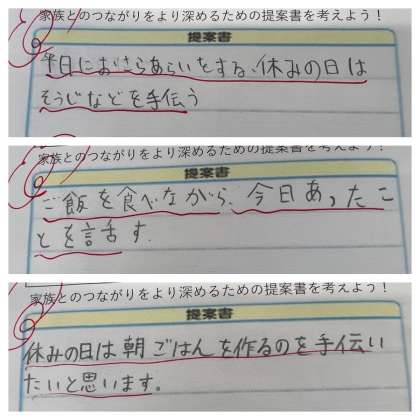 家族とのつながりをより深めるための提案書を考えよう！
提案書
平日におさらあらいをする、休みの日は
そうじなどを手伝う
家族とのつながりをより深めるための提案書を考えよう！
提案書
ご飯を食べながら、今日あったこ
とを言舌す.
家族とのつながりをより深めるための提案書を考えよう！
提案書
休みの日は朝ごはんを作るのを手伝い
たいと思います。